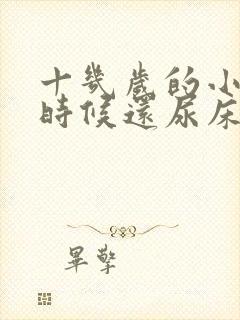 十幾歲的小
時候還尿床
畢擎